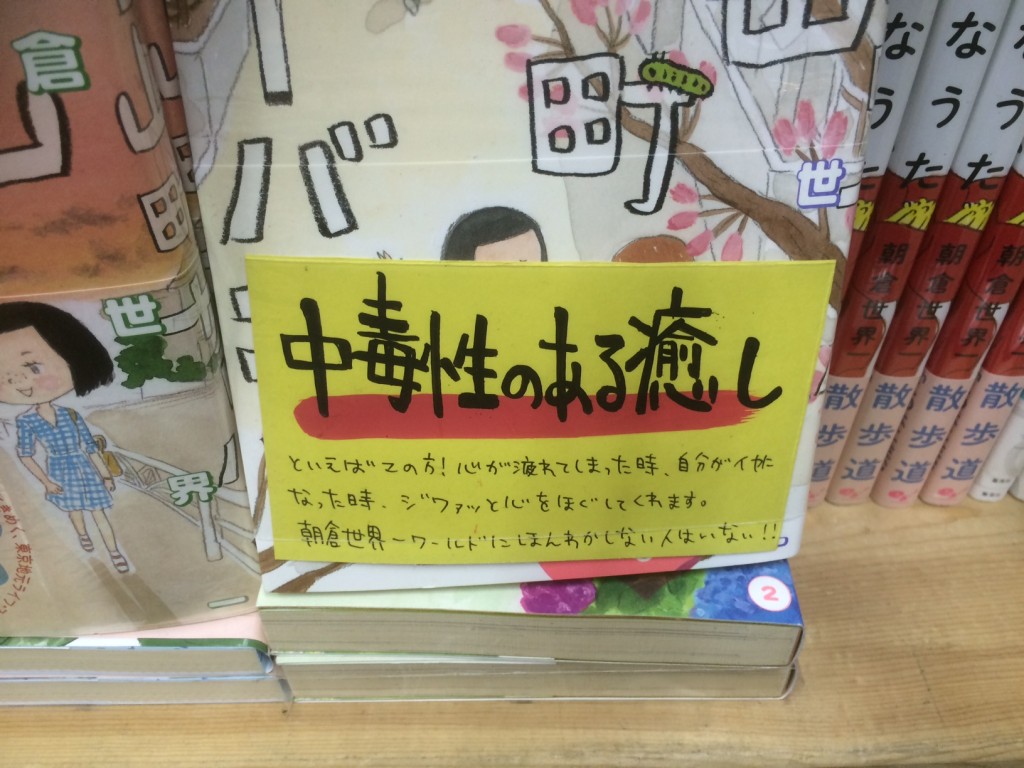 中毒性のある癒し
といえばこの方!心が疲れてしまった時、自分がイヤに
なった時、ジワァッと心をほぐしてくれます。
朝倉世界一ワールドにほんわかしない人はいない!!
イ
バ
町
世
2
倉
町
世
界
一
なうた
朝倉世界一
散歩道
なうた
朝倉世界一
散歩道
なうた
朝倉世界一
散歩道